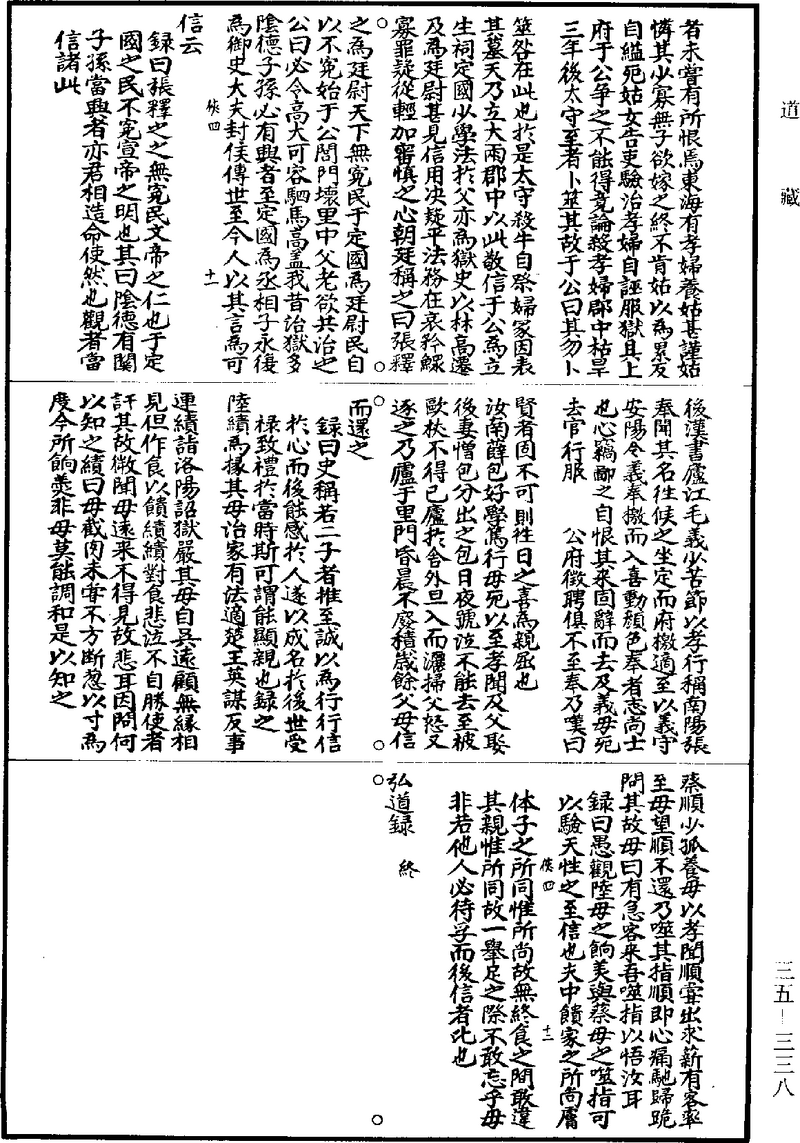 道藏
者未嘗有所恨焉東海有孝婦養姑甚謹姑
憐其少寡無子欲嫁之終不肯姑以為累友
自縊死姑女告吏驗治孝婦自誣服獄具上
府于公爭之不能得竟論殺孝婦郡中枯旱
三年後太守至者卜筮其故于公曰其勿卜
筮咎在此也於是太守殺牛自祭婦冢因表
其墓天乃立大雨郡中以此敬信于公為立
生祠定國少學法於父亦為獄史以材高遷
及為廷尉甚見信用决疑平法務在哀矜鰥
寡罪疑從輕加審慎之心朝廷稱之曰張釋
之為廷尉天下無冤民于定國為廷尉民自
以不冤始于公閭門壞里中父老欲共治之
公曰必令高大可容駟馬高盖我昔治獄多
陰德子孫必有興者至定國為丞相子永後
為御史大夫封侯傳世至今人以其言為可
俠四 十一
信云
録曰張釋之之無冤民文帝之仁也于定
國之民不冤宣帝之明也其曰陰德有闗
子孫當興者亦君相造命使然也觀者當
信諸此
後漢書廬江毛義少苦節以孝行稱南陽張
奉聞其名往候之坐定而府檄適至以義守
安陽令義奉檄而入喜動顔色奉者志尚士
也心竊鄙之自恨其來固辭而去及義母死
去官行服 公府徵聘俱不至奉乃嘆曰
賢者固不可則往日之喜為親屈也
汝南薛包好學篤行母死以至孝聞及父娶
後妻憎包分出之包日夜號泣不能去至被
歐杖不得已廬於舍外旦入而灑掃父怒又
逐之乃廬于里門昏晨不廢積歲餘父母信
而還之
録曰史稱若二子者推至誠以為行行信
於心而後能感於人遂以成名於後世受
禄致禮於當時斯可謂能顯親也録之
陸續為掾其母治家有法適楚王英謀反事
連續詣洛陽詔獄嚴其母自吳遠顧無縁相
見但作食以饋續續對食悲泣不自勝使者
訐其故微聞母遠來不得見故悲耳因問何
以知之續曰母截肉未嘗不方斷葱以寸為
度今所餉羮非母莫能調和是以知之
蔡順少孤養母以孝聞順嘗出求薪有客卒
至母望順不還乃噬其指順即心痛馳歸跪
問其故母曰有急客來吾噬指以悟汝耳
録曰愚觀陸母之餉美與蔡母之噬指可
以驗天性之至信也夫中饋家之所尚膚
俠四 十二
体子之所同惟所尚故無終食之間敢違
其親惟所同故一舉足之際不敢忘乎母
非若他人必待孚而後信者比也
弘道録 終
三五—三三八